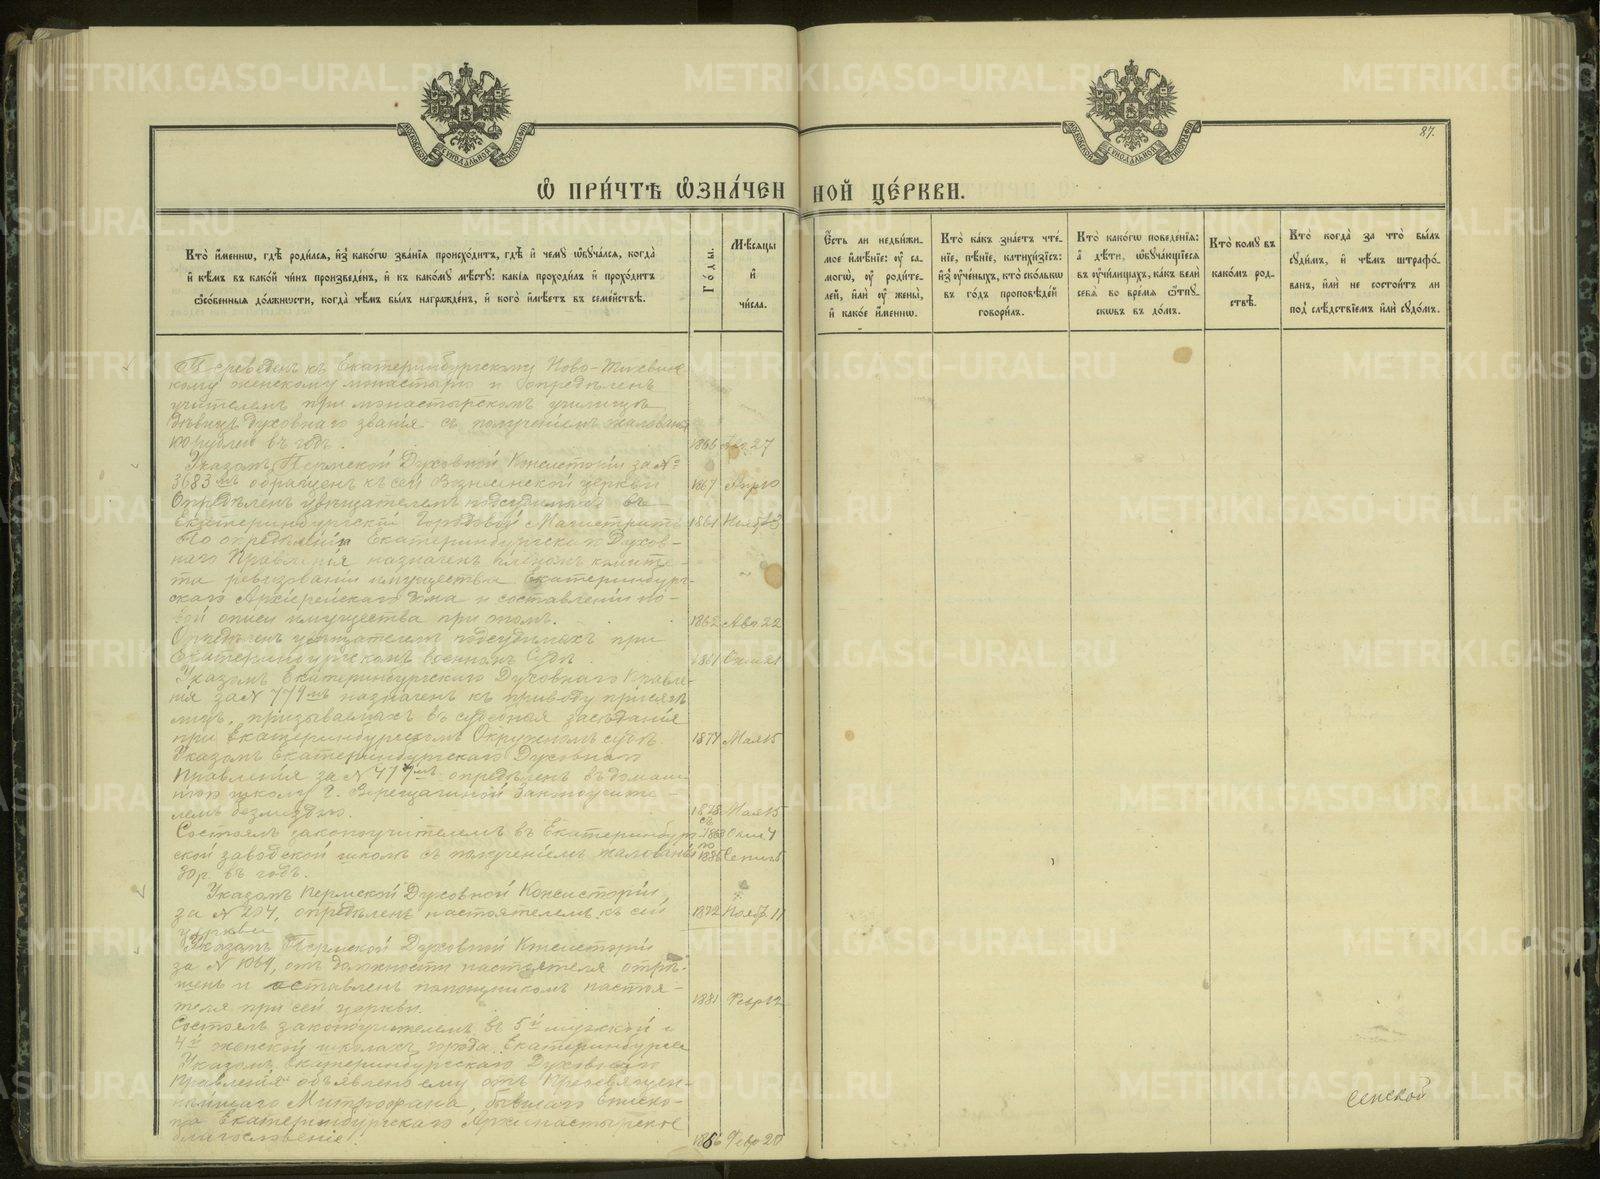 87.
Ѡ ПРИ́ЧТѢ ѠЗНА́ЧЕННОЙ ЦЕ́РКВИ.
Кто̀ и҆́менно, гдѣ̀ роди́лсѧ, и҆з̾ како́гѡ зва́нїѧ происхо́дитъ, гдѣ̀ и҆ чемꙋ̀ ѡ҆бꙋча́лсѧ, когда̀
и҆ кѣ́мъ въ како́й чи́нъ произведе́нъ, и҆ къ како́мꙋ мѣ́стꙋ: какі́ѧ проходи́лъ и҆ прохо́дитъ
ѡ҆со́бенныѧ до́лжности, когда̀ чѣ́мъ бы́лъ награжде́нъ, и҆ кого̀ и҆мѣ́етъ въ семе́йствѣ.
Го́ды.
Мѣ́сѧцы
и҆
чи́сла.
Є҆́сть ли недви́жи-
мое и҆мѣ́нїе: ᲂу҆ са-
могѡ̀, ᲂу҆ роди́те-
лей, и҆лѝ ᲂу҆ жены̀,
и҆ како́е и҆́менно.
Кто̀ ка́къ зна́етъ чте́-
нїе, пѣ́нїе, катихи́зїсъ:
и҆з̾ ᲂу҆че́ныхъ, кто̀ ско́лькѡ
въ го́дъ проповѣ́дей
говори́лъ.
Кто̀ како́гѡ поведе́нїѧ:
а҆ дѣ́ти, ѡ҆бꙋча́ющїесѧ
въ ᲂу҆чи́лищахъ, ка́къ велѝ
себѧ̀ во вре́мѧ ѿпꙋ-
скѡвъ въ до́мъ.
Кто̀ комꙋ̀ въ
како́мъ род-
ствѣ̀.
Кто̀ когда̀ за что̀ бы́лъ
сꙋди́мъ, и҆ чѣ́мъ штрафо́-
ванъ, и҆лѝ не состои́тъ ли
под̾ слѣ́дствїемъ и҆лѝ сꙋдо́мъ.
Переведенъ къ Екатеринбургскому Ново-Тихвин-
скому женскому монастырю и опредѣленъ
учителемъ при монастырскомъ училищѣ
дѣвицъ Духовнаго званія съ полученіемъ жалованья
рублей въ годъ. 1866 27
Указомъ Пермской Духовной Консисторіи за №
3683мъ обращенъ къ сей Вознесенской церкви 1867 Апр 10
Опредѣленъ увѣщателемъ подсудимыхъ въ
Екатеринбургскій Городовой Магистратъ 1861 Нояб 3
По опредѣленію Екатеринбургскаго Духов-
наго Правленія назначенъ членомъ комите-
та ревизованіи имущества Екатеринбург-
скаго Архіерейскаго дома и составленіи но-
вой описи имущества при томъ. 1862 Авг 22
Опредѣленъ увѣщателемъ подсудимыхъ при
Екатеринбургскомъ Военномъ Судѣ
Указомъ Екатеринбургскаго Духовнаго Правле-
нія за № 779мъ назначенъ къ приводу присягѣ
лицъ, призываемыхъ въ судебныя засѣданія
при Екатеринбургскомъ Окружномъ судѣ 1877 Мая 15
Указомъ Екатеринбургскаго Духовнаго
Правленія за № опредѣленъ въ домаш-
нюю школу Г. Верещагиной Законоучите-
лемъ безмездно. 1878 Мая 15
Состоялъ законоучителемъ въ Екатеринбург- съ 1868
ской заводской школѣ съ полученіемъ жалованья по
30 р. въ годъ.
Указомъ Пермской Духовной Консисторіи,
за № опредѣленъ настоятелемъ къ сей 1872 Нояб 11
церкви
Указомъ Пермской Духовной Консисторіи
за № отъ должности настоятеля отрѣ-
шенъ и оставленъ помощникомъ настоя-
теля при сей церкви. 1881 Февр 12
Состоялъ законоучителемъ въ 5й мужской и
4й женской школахъ города Екатеринбурга
Указомъ Екатеринбургскаго Духовнаго
Правленія объявлено ему отъ Преосвящен-
нѣйшаго Митрофана, бывшаго Еписко-
па Екатеринбургскаго Архипастырское
благословеніе. Февр 20
сенской